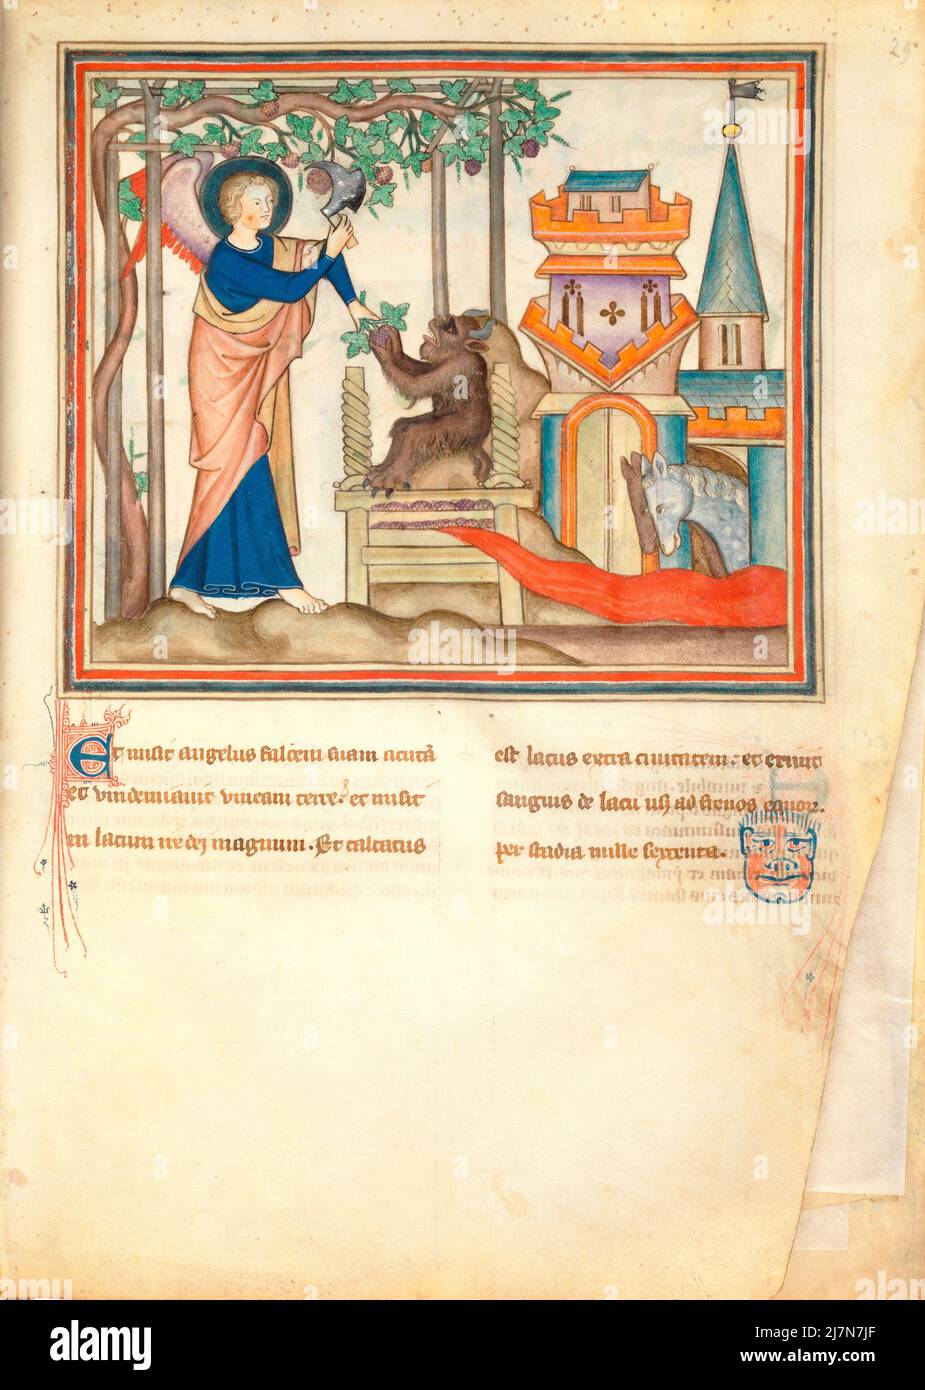 29
Et misit angelus falcem suam acutā
et vindemiavit vineam terre. et misit
in lacum ire dei magnum. Et calcatus
est lacus extra civitatem. et exivit
sanguis de lacu usq; ad frenos equor.
per stadia mille sexcenta.
alamy
Image ID: 2J7N7JF
www.alamy.com